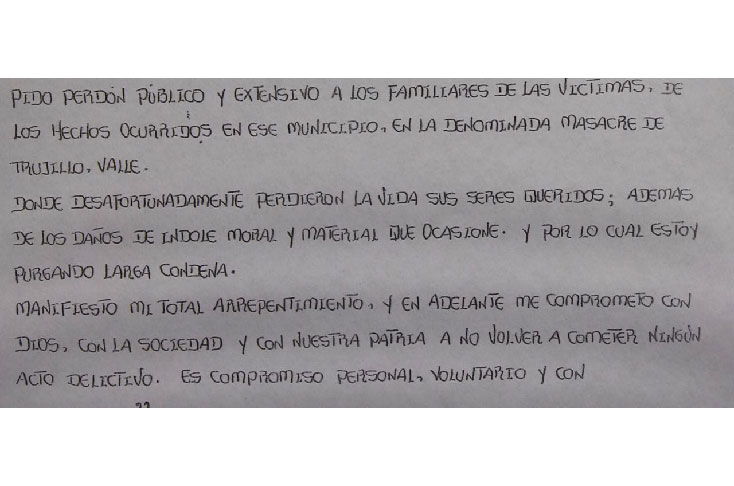 PIDO PERDÓN PÚBLICO Y EXTENSIVO A LOS FAMILIARES DE LAS VICTIMAS, DE
LOS HECHOS OCURRIDOS EN ESE MUNICIPIO, EN LA DENOMINADA MASACRE DE
TRUJILLO, VALLE.
DONDE DESAFORTUNADAMENTE PERDIERON LA VIDA SUS SERES QUERIDOS; ADEMAS
DE LOS DAÑOS DE INDOLE MORAL Y MATERIAL QUE OCASIONE. Y POR LO CUAL ESTOY
PURGANDO LARGA CONDENA.
MANIFIESTO MI TOTAL ARREPENTIMIENTO, Y EN ADELANTE ME COMPROMETO CON
DIOS, CON LA SOCIEDAD Y CON NUESTRA PATRIA A NO VOLVER A COMETER NINGÚN
ACTO DELICTIVO. ES COMPROMISO PERSONAL, VOLUNTARIO Y CON